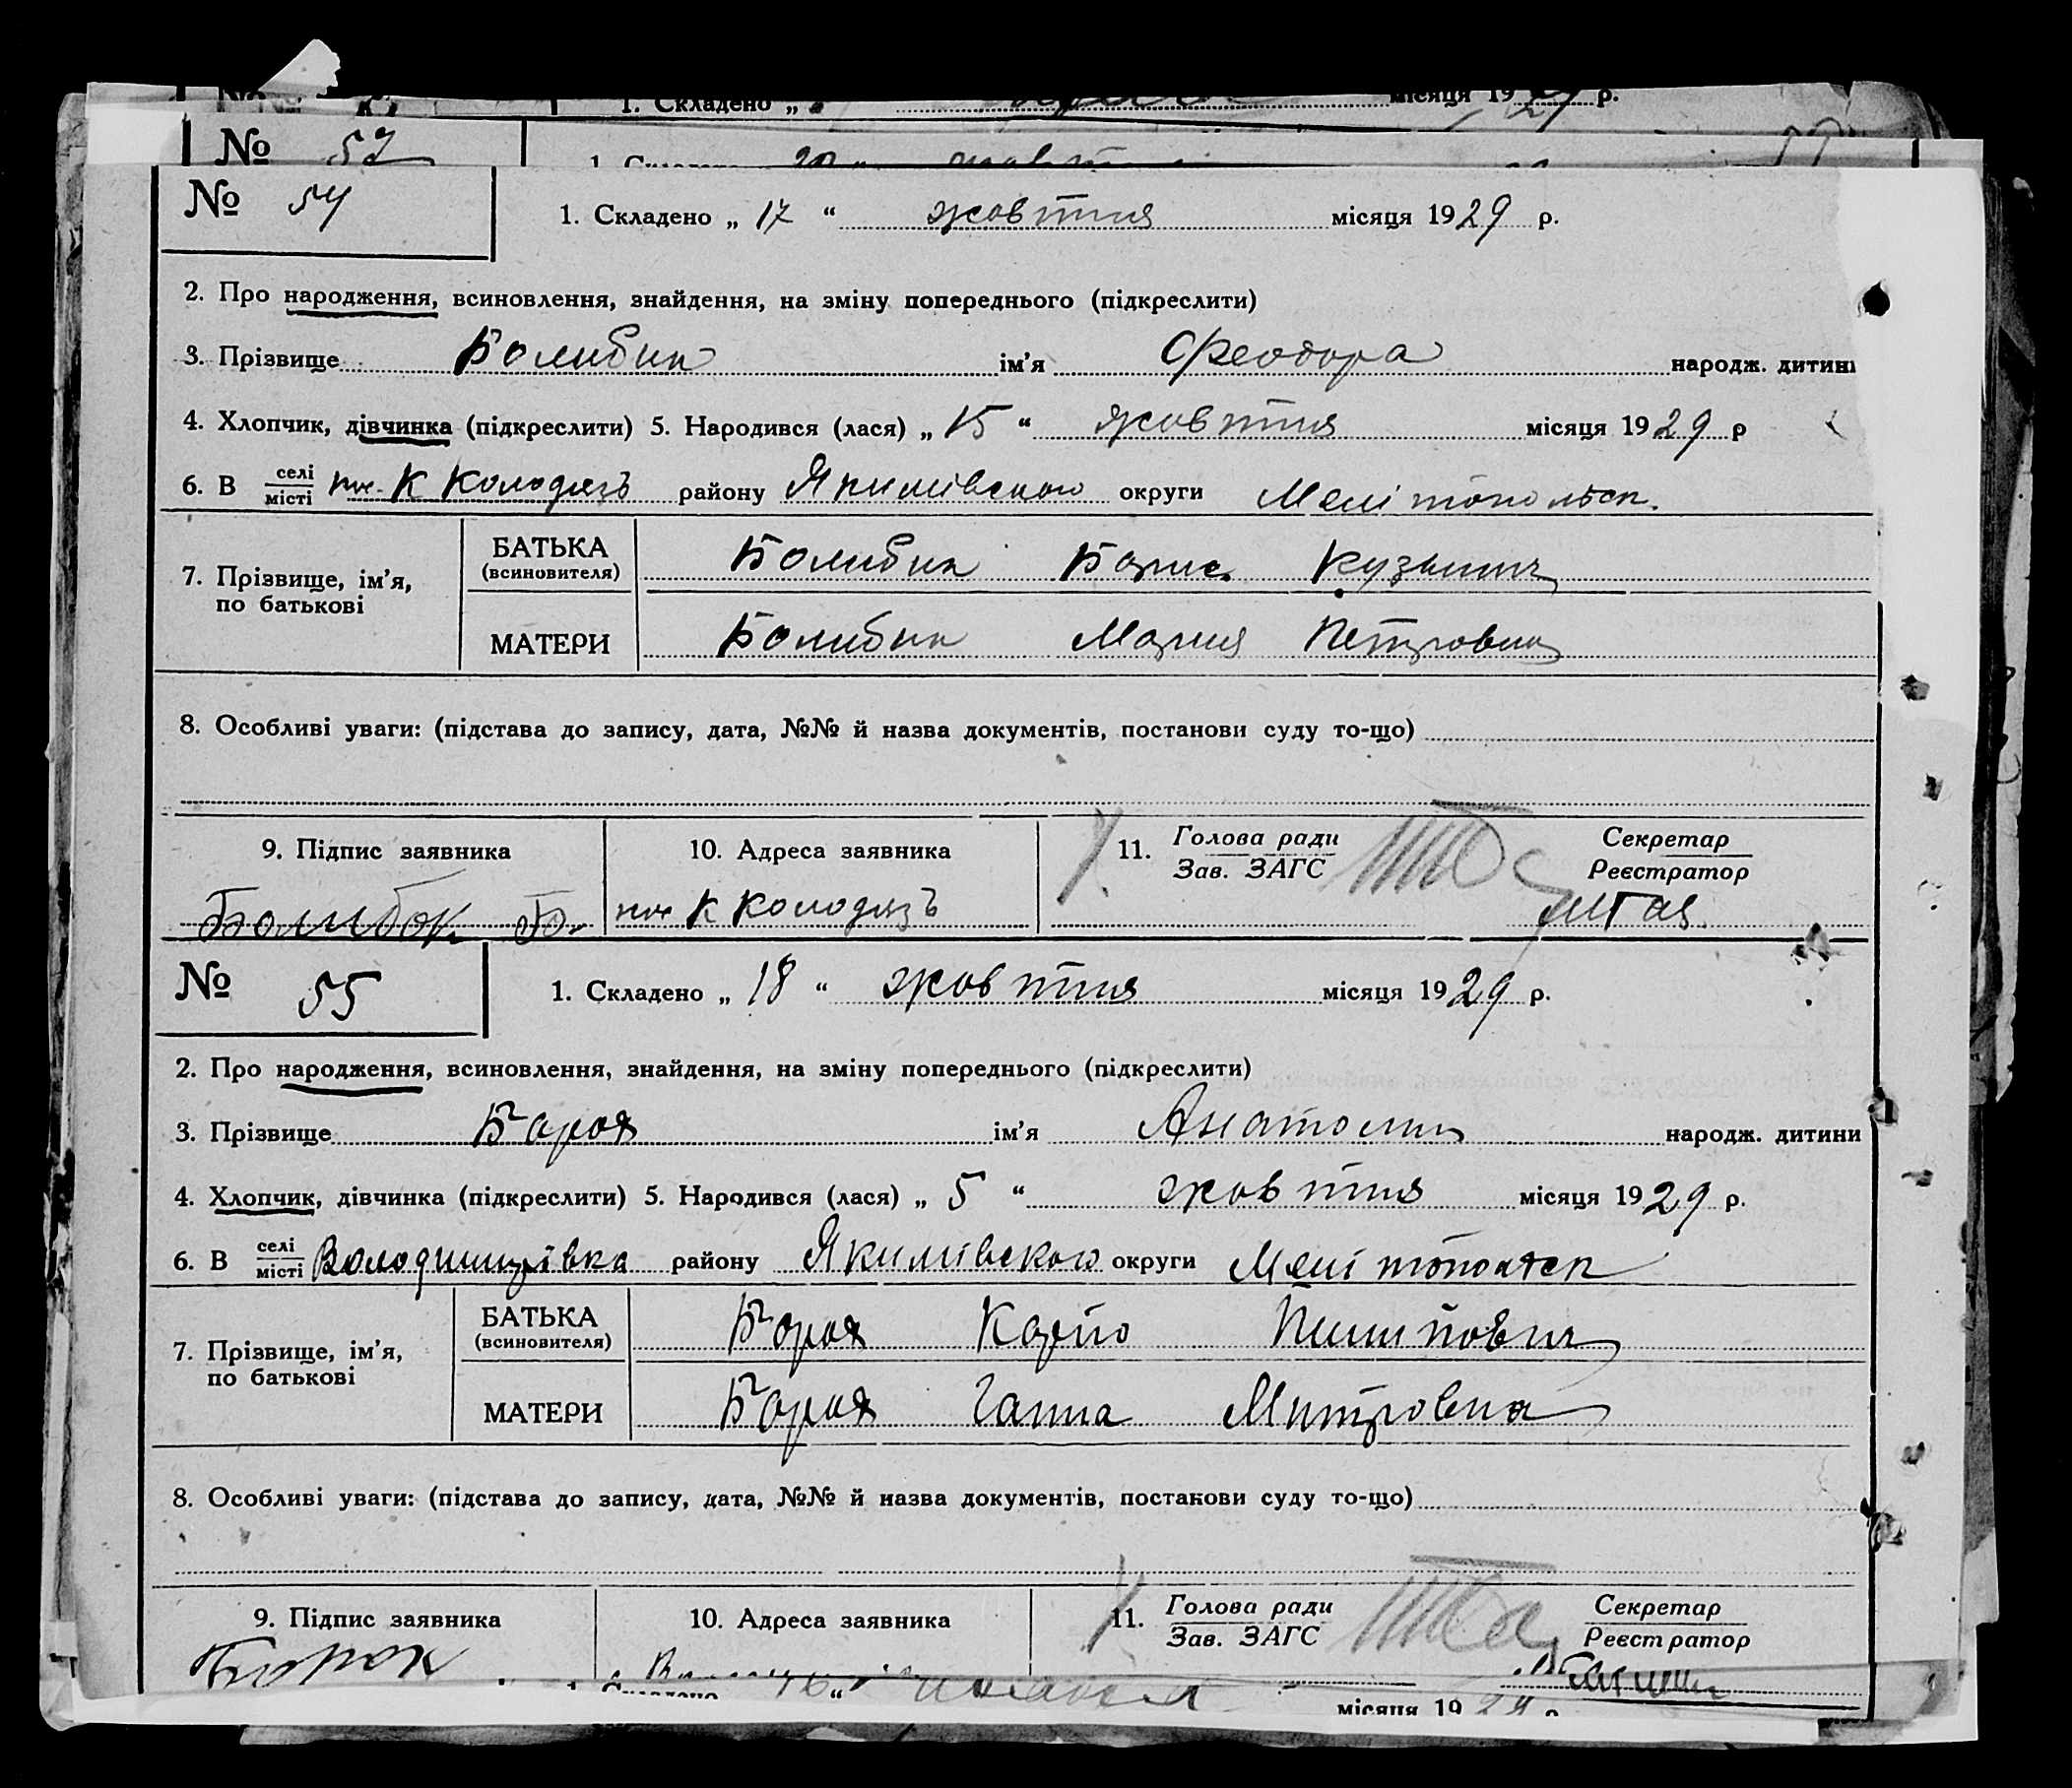 1. Складено „ місяця 1929 р.
№ 52
№ 54
1. Складено „ 17 “ жовтня місяця 1929 р.
2. Про народження, всиновлення, знайдення, на зміну попереднього (підкреслити)
3. Прізвище Болибок ім’я Феодора народж. дитини
4. Хлопчик, дівчинка (підкреслити) 5. Народився (лася) „ 15 “ жовтня місяця 1929 р
6. В селі місті К Колодязь району Якимівського округи Мелітопольск.
7. Прізвище, ім’я, по батькові
БАТЬКА (всиновителя) Болибок Борис Кузьмич
МАТЕРИ Болибок Мария Петровна
8. Особливі уваги: (підстава до запису, дата, №№ й назва документів, постанови суду то-що)
9. Підпис заявника 10. Адреса заявника 11. Голова ради Зав. ЗАГС Секретар Реєстратор
Болибок Б. К Колодязь
№ 55
1. Складено „ 18 “ жовтня місяця 1929 р.
2. Про народження, всиновлення, знайдення, на зміну попереднього (підкреслити)
3. Прізвище ім’я Анатолий народж. дитини
4. Хлопчик, дівчинка (підкреслити) 5. Народився (лася) „ 5 “ жовтня місяця 1929 р.
6. В селі місті Володимирівка району Якимівского округи Мелітопольск
7. Прізвище, ім’я, по батькові
БАТЬКА (всиновителя) Карпо Пилипович
МАТЕРИ Ганна Митровна
8. Особливі уваги: (підстава до запису, дата, №№ й назва документів, постанови суду то-що)
9. Підпис заявника 10. Адреса заявника 11. Голова ради Зав. ЗАГС Секретар Реєстратор
місяця 1929 р.